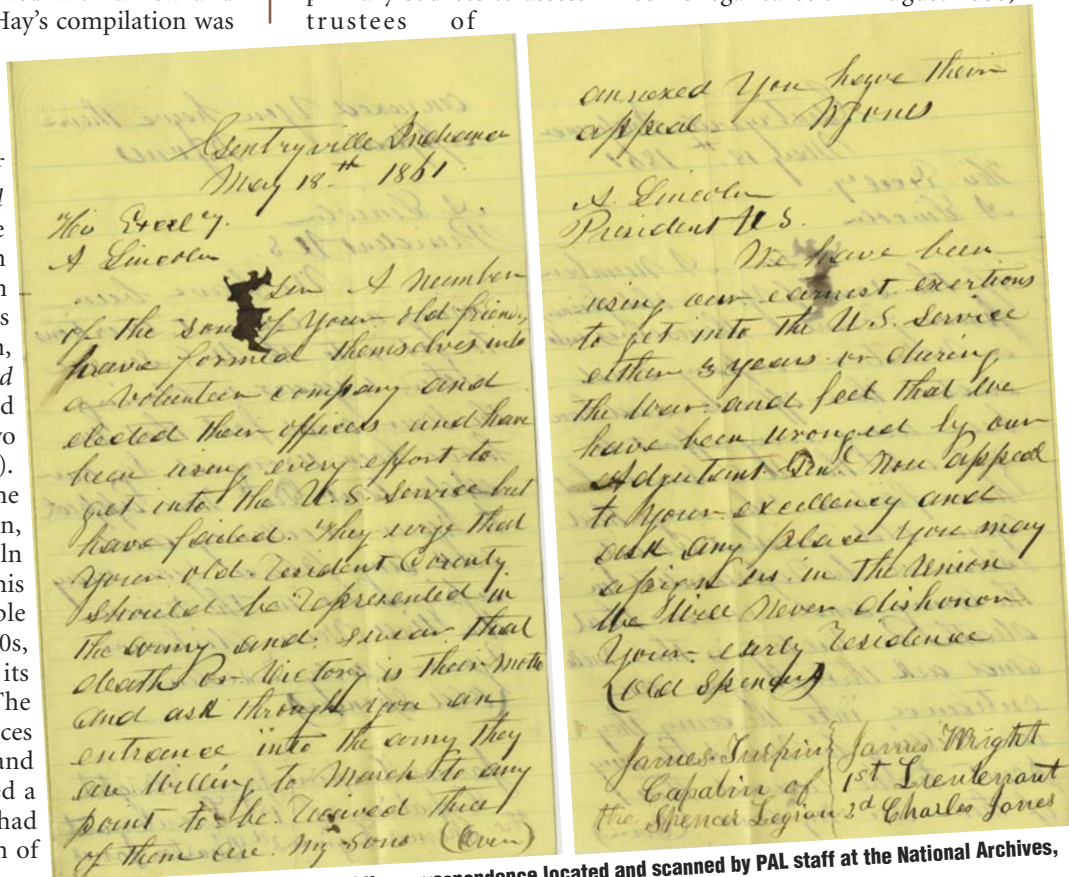 Hay's compilation was
trustees of
Gentryville Indiana
May 18th 1861.
His Excel'y.
A Lincoln
Sir A number
of the sons of your old friends
have formed themselves into
a volunteer company and
elected their officers and have
been using every effort to
get into the U.S. Service but
have failed. They urge that
your old resident County
should be represented in
the army and swear that
death or Victory is their motto
and ask through you an
entrance into the army they
are Willing to March to any
point to be received three
of them are My Sons (Over)
annexed You have their
appeal WJones
A. Lincoln
President U.S.
We have been
using our earnest exertions
to get into the U.S. Service
either 3 years or during
the War and feel that we
have been wronged by our
Adjutant Genl. Now appeal
to your excellency and
ask any place you may
assign us in the Union
We Will Never dishonor
Your early residence
(Old Spencer)
James Turpin
Capatin of
the Spencer Legion
James Wright
1st Lieutenant
2d Charles Jones
correspondence located and scanned by PAL staff at the National Archives,